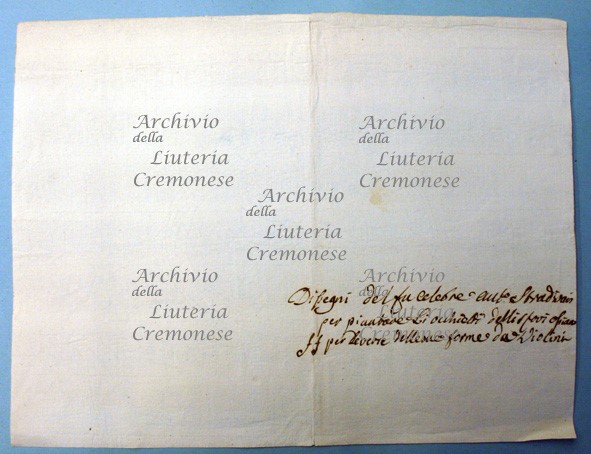 Archivio
della
Liuteria
Cremonese
Archivio
della
Liuteria
Cremonese
Archivio
della
Liuteria
Cremonese
Archivio
della
Liuteria
Cremonese
Archivio
della
Liuteria
Disegni del fu celebre Anto Stradivari
per piantare li occhietti delli sfori
ff per le due delle sue forme da Violini